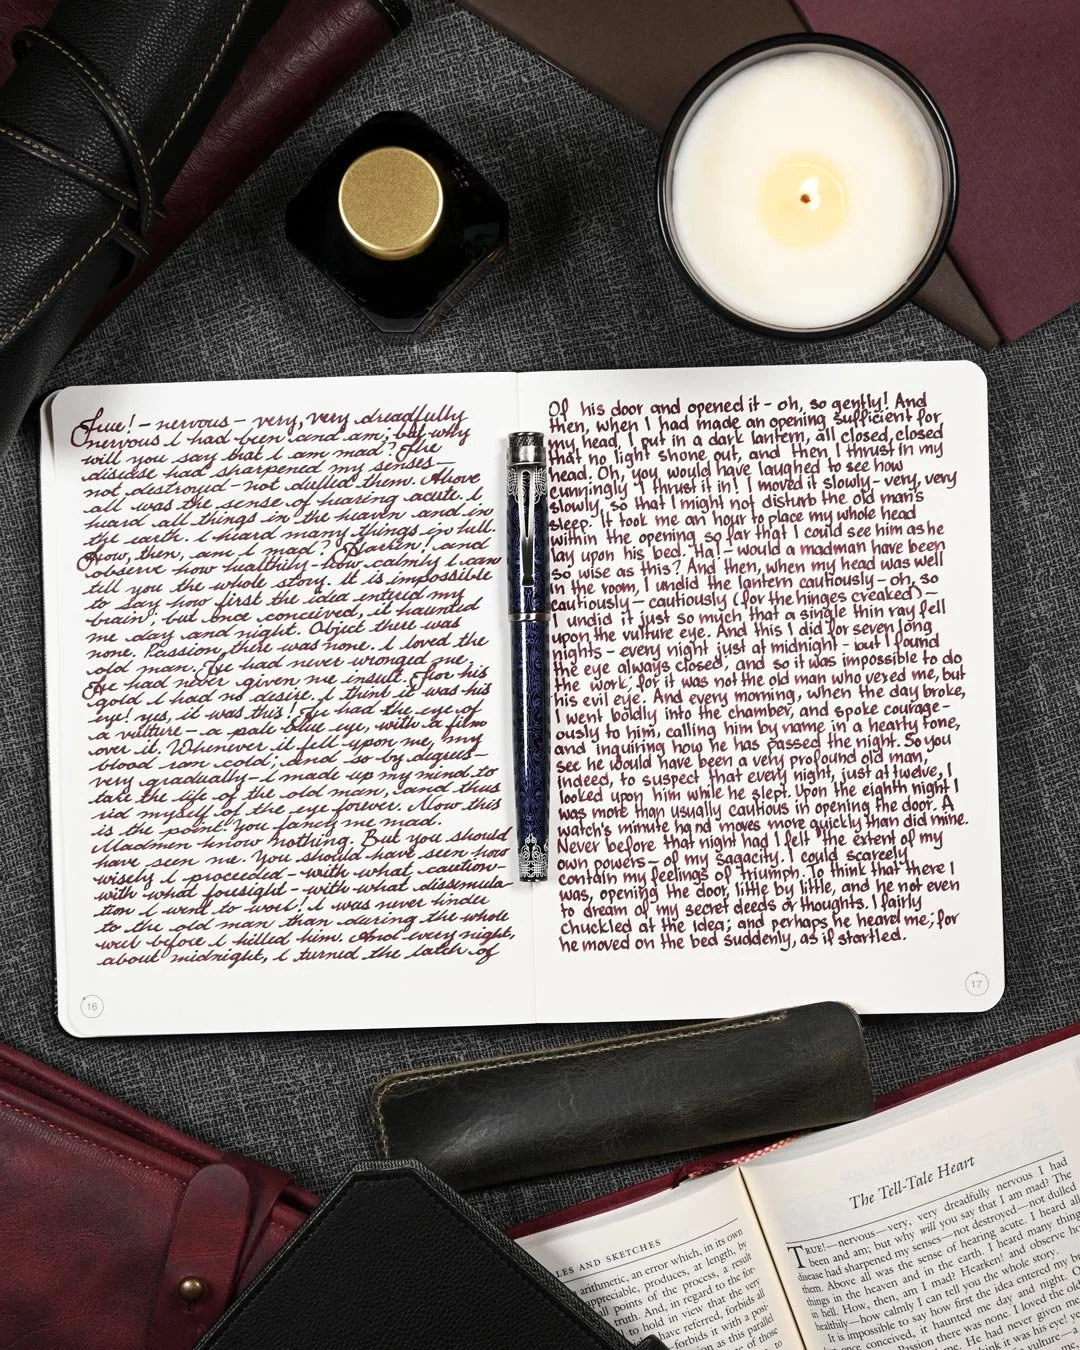 True! – nervous – very, very dreadfully
nervous I had been and am; but why
will you say that I am mad? The
disease had sharpened my senses–
not destroyed – not dulled them. Above
all was the sense of hearing acute. I
heard all things in the heaven and in
the earth. I heard many things in hell.
How, then, am I mad? Harken! and
observe how healthily – how calmly I can
tell you the whole story. It is impossible
to say how first the idea entered my
brain; but once conceived, it haunted
me day and night. Object there was
none. Passion there was none. I loved the
old man. He had never wronged me.
He had never given me insult. For his
gold I had no desire. I think it was his
eye! yes, it was this! He had the eye of
a vulture – a pale blue eye, with a film
over it. Whenever it fell upon me, my
blood ran cold; and so by degrees–
very gradually – I made up my mind to
take the life of the old man, and thus
rid myself of the eye forever. Now this
is the point. You fancy me mad.
Madmen know nothing. But you should
have seen me. You should have seen how
wisely I proceeded – with what caution–
with what foresight – with what dissimula-
tion I went to work! I was never kinder
to the old man than during the whole
week before I killed him. And every night,
about midnight, I turned the latch of
16
Of his door and opened it – oh, so gently! And
then, when I had made an opening sufficient for
my head, I put in a dark lantern, all closed, closed
that no light shone out, and then I thrust in my
head. Oh, you would have laughed to see how
cunningly I thrust it in! I moved it slowly – very, very
slowly, so that I might not disturb the old man's
sleep. It took me an hour to place my whole head
within the opening so far that I could see him as he
lay upon his bed. Ha! – would a madman have been
so wise as this? And then, when my head was well
in the room, I undid the lantern cautiously – oh, so
cautiously – cautiously (for the hinges creaked) –
I undid it just so much that a single thin ray fell
upon the vulture eye. And this I did for seven long
nights – every night just at midnight – but I found
the eye always closed; and so it was impossible to do
the work; for it was not the old man who vexed me, but
his evil eye. And every morning, when the day broke,
I went boldly into the chamber, and spoke courage-
ously to him, calling him by name in a hearty tone,
and inquiring how he has passed the night. So you
see he would have been a very profound old man,
indeed, to suspect that every night, just at twelve, I
looked upon him while he slept. Upon the eighth night I
was more than usually cautious in opening the door. A
watch's minute hand moves more quickly than did mine.
Never before that night had I felt the extent of my
own powers – of my sagacity. I could scarcely
contain my feelings of triumph. To think that there I
was, opening the door, little by little, and he not even
to dream of my secret deeds or thoughts. I fairly
chuckled at the idea; and perhaps he heard me; for
he moved on the bed suddenly, as if startled.
17
LES AND SKETCHES
arithmetic, an error which, in its own
appreciable, produces, at length, by
all points of the process, a result
truth. And, in regard to the for-
to hold in view that the very
have referred, forbids all
forbids it with a posi-
on as this parallel
of those
The Tell-Tale Heart
TRUE!—nervous—very, very dreadfully nervous I had
been and am; but why will you say that I am mad? The
disease had sharpened my senses—not destroyed—not dulled
them. Above all was the sense of hearing acute. I heard all
things in the heaven and in the earth. I heard many things
in hell. How, then, am I mad? Hearken! and observe how
healthily—how calmly I can tell you the whole story.
It is impossible to say how first the idea entered my
once conceived, it haunted me day and night. O
Passion there was none. I loved the old
He had never given me
think it was his eye! ye
a vulture—a